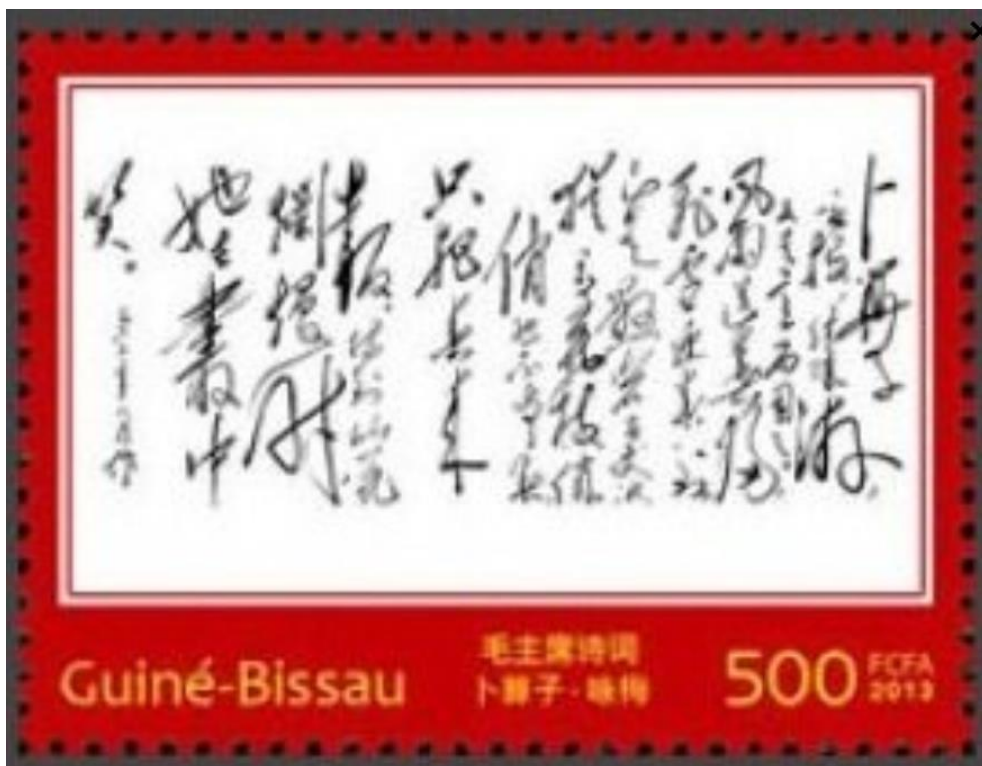 卜算子
风雨送春归
飞雪迎春到 已
犹有花枝俏
俏也不争春
只把春来
报 待到山花
烂漫时
她在丛中
笑。
Guiné-Bissau
毛主席诗词
卜算子·咏梅
500 FCFA
2013